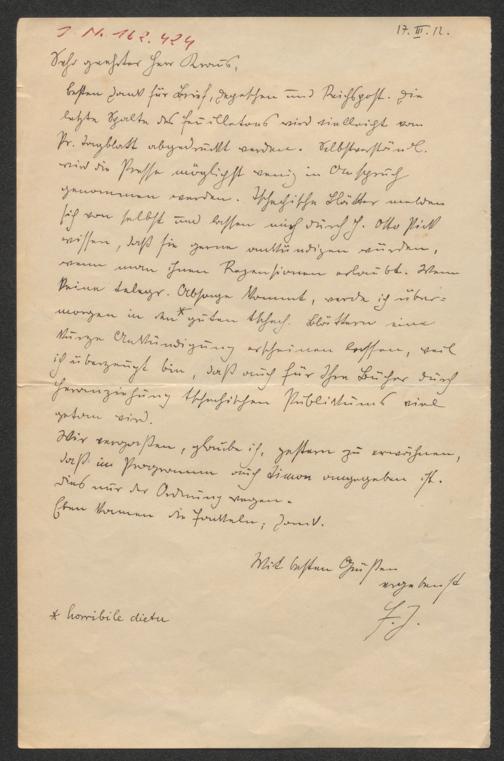 I N. 162.424
17. III. 12.
Sehr geehrter Herr Kraus,
besten Dank für Brief, Depeschen und Reichspost. Die
letzte Spalte des Feuilletons wird vielleicht vom
Pr. Tagblatt abgedruckt werden. Selbstverständl.
wird die Presse möglichst wenig in Anspruch
genommen werden. Tschechische Blätter melden
sich von selbst und lassen mich durch H. Otto Pick
wissen, daß sie gerne ankündigen würden,
wenn man ihnen Rezensionen erlaubt. Wenn
keine telegr. Absage kommt, werde ich über-
morgen in den* guten tschech. Blättern eine
kurze Ankündigung erscheinen lassen, weil
ich überzeugt bin, daß auch für Ihre Bücher durch
Heranziehung tschechischen Publikums viel
getan wird.
Wir vergaßen, glaube ich, gestern zu erwähnen,
daß im Programm auch Simon angegeben ist.
Dies nur der Ordnung wegen.
Eben kamen die Fackeln;
Mit besten Grüßen
ergebenst
F. J.
* horribile dictu